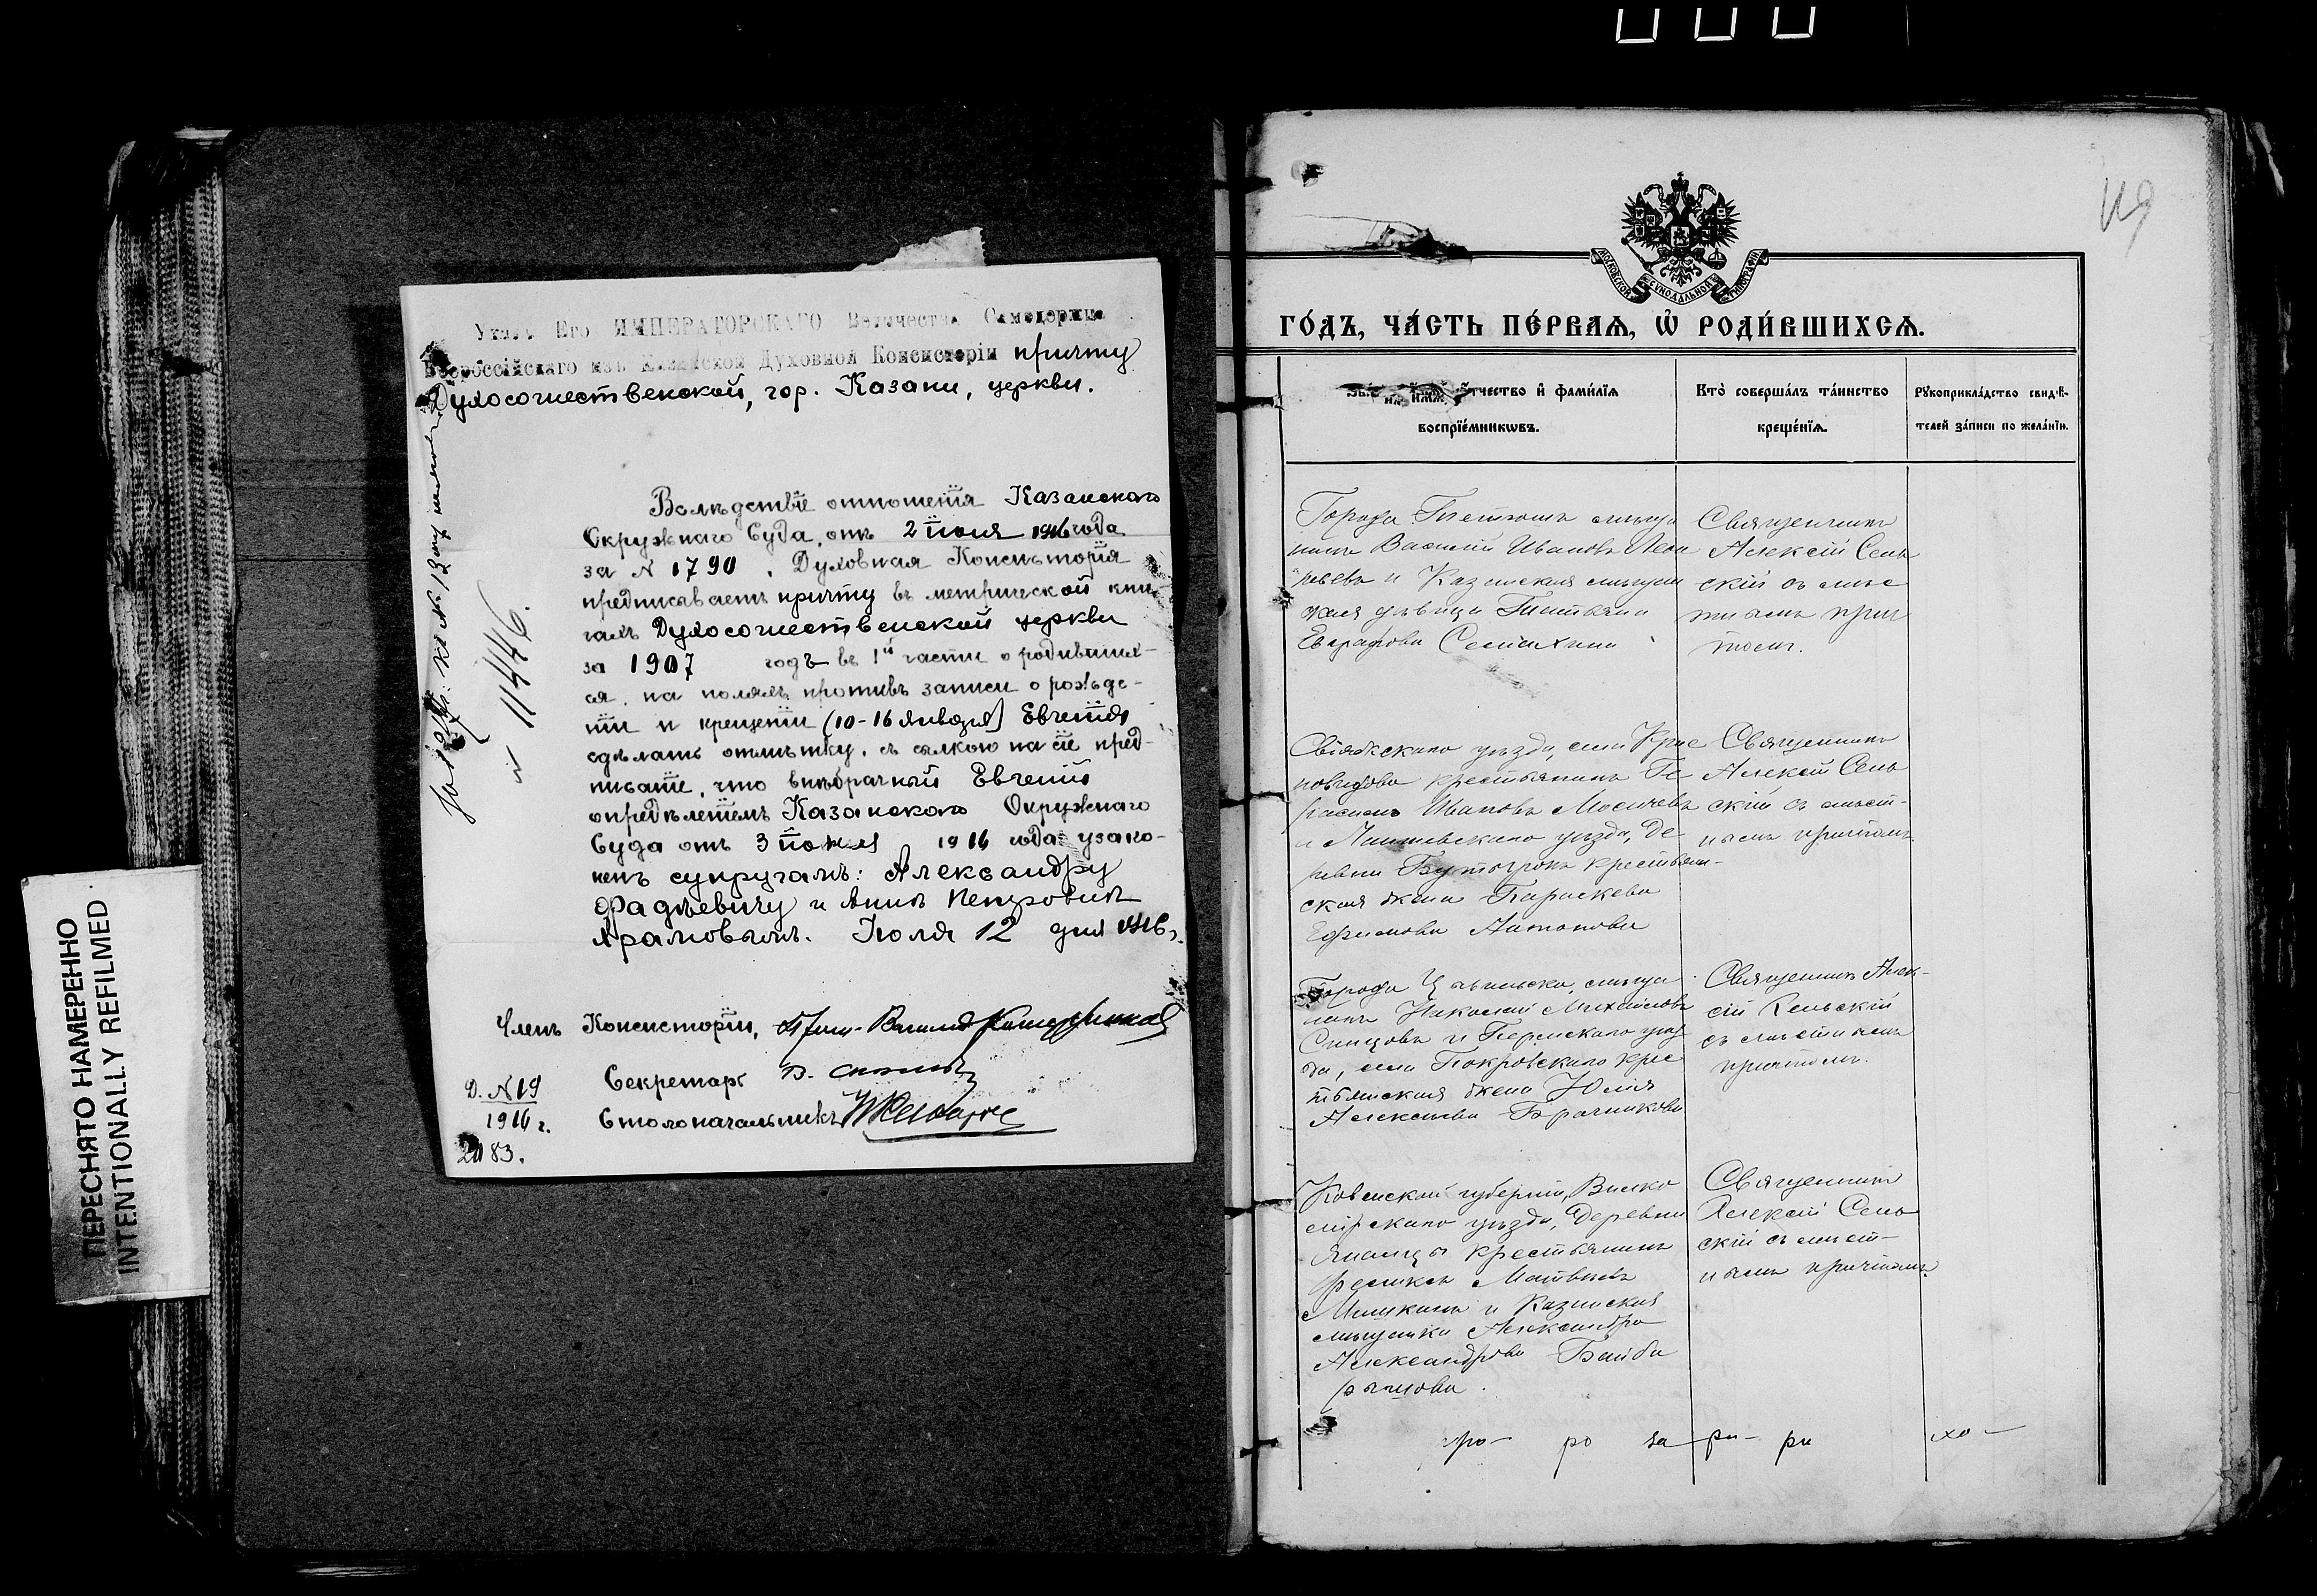 Указъ Его ИМПЕРАТОРСКАГО Величества Самодержца
Всероссійскаго изъ Казанской Духовной Консисторіи причту
Духосошественской, гор. Казани, церкви.
Вслѣдствіе отношенія Казанскаго
Окружнаго Суда, отъ 2 іюля 1916 года
за № 1790, Духовная Консисторія
предписываетъ причту въ метрической кни-
гахъ Духосошественской церкви
за 1907 годъ въ 1й части о родивших-
ся, на поляхъ противъ записи о рожде-
ніи и крещеніи (10-16 января) Евгенія
сдѣлать отмѣтку, съ сылкою на сіе пред-
писаніе, что внѣбрачный Евгеній
опредѣленіемъ Казанскаго Окружнаго
Суда отъ 3 іюня 1916 года узако-
ненъ супругамъ: Александру
Фадѣевичу и Аннѣ Петровнѣ
Храмовымъ. Іюля 12 дня 1916 г.
Членъ Консисторіи,
Секретарь
Столоначальникъ
Д. № 19
1916 г.
2083.
№ 11446.
ПЕРЕСНЯТО НАМЕРЕННО
INTENTIONALLY REFILMED
119
МОСКОВСКОЙ СѴНОДАЛЬНОЙ ТИПОГРАФІИ
ГО́ДЪ, ЧА́СТЬ ПЕ́РВАѦ, Ѡ҆ РОДИ́ВШИХСѦ.
и҆́мѧ, ѻ҆́тчество и҆ фами́лїѧ
воспрїе́мникѡвъ.
Кто̀ соверша́лъ та́инство
креще́нїѧ.
Рꙋкоприкла́дство свидѣ́-
телей за́писи по жела́нїю.
Города Тетюшъ мѣща
нинъ Василій Ивановъ Леон
тьевъ и Казанская мѣщан
ская дѣвица Татьяна
Евграфова Семихина
Священникъ
Алексѣй Сель
скій съ мѣс
тнымъ прич
томъ.
Свіяжскаго уѣзда, села Крас
новидова крестьянинъ Ге
расимъ Ивановъ Мосичевъ
и Лаишевскаго уѣзда, де
ревни Бутырокъ крестьян-
ская жена Параскева
Ефимова Антонова
Священникъ
Алексѣй Сель
скій съ мѣст-
нымъ причтомъ.
Города Цивильска, мѣща
нинъ Николай Михайловъ
Синцовъ и Пермскаго уѣз
да, села Покровскаго крес
тьянская жена Юлія
Алексѣева Брачникова
Священникъ Алек-
сѣй Сельскій
съ мѣстнымъ
причтомъ.
Ковенской губерніи, Вилко
мірскаго уѣзда, деревни
Янанцы крестьянинъ
Феликсъ Матвѣевъ
Мишкинъ и Казанская
мѣщанка Александра
Александрова Байба
рышова.
Священникъ
Алексѣй Сель
скій съ мѣст-
нымъ причтомъ.
ро- ро за-ри- ри хо-